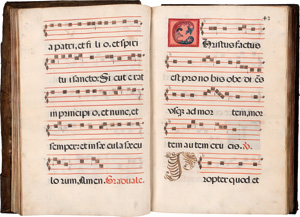 a patri, et fi li o, et spiri
tu i sancto: Si cut e rat
in principi o, et nunc, et
semper: et in sæ cu la sæcu
lo rum Amen. Graduale.
42
Christus factus
est pro no bis obe di ēs
usq ad mor tem, mor
tem au tem cru cis. ℣.
ropter quod et